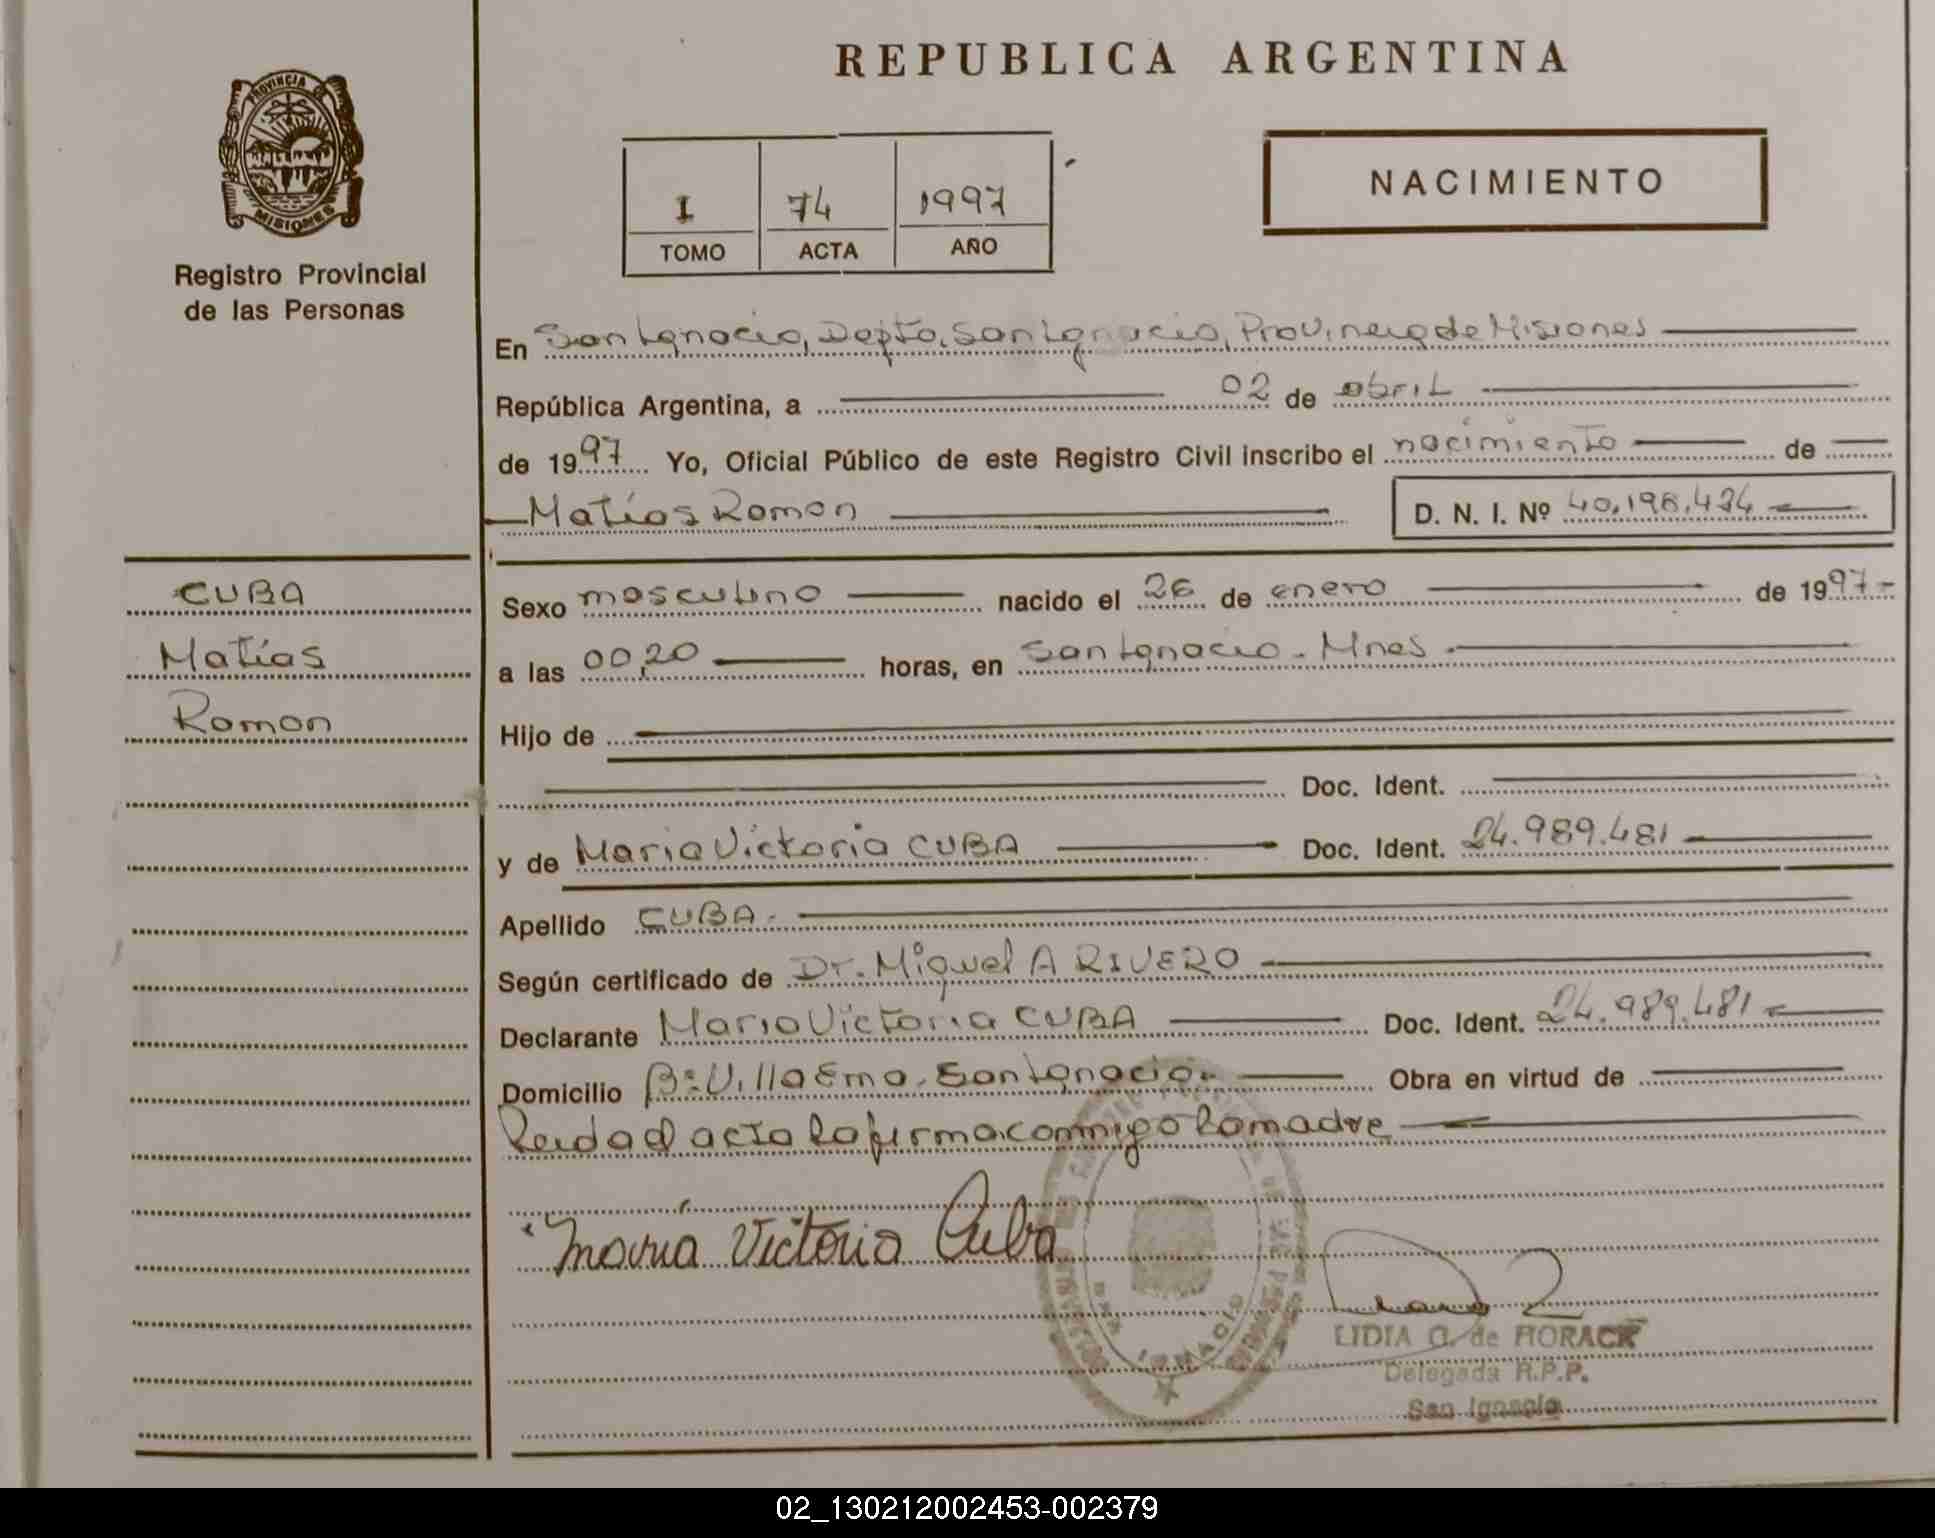 REPUBLICA ARGENTINA
PROVINCIA DE
MISIONES
Registro Provincial
de las Personas
I 74 1997
TOMO ACTA AÑO
NACIMIENTO
En San Ignacio, Depto. San Ignacio, Provincia de Misiones
República Argentina, a 02 de abril
de 1997 Yo, Oficial Público de este Registro Civil inscribo el nacimiento de
Matías Ramon D. N. I. Nº
CUBA
Matías
Ramon
Sexo masculino nacido el 26 de enero de 1997
a las 00,20 horas, en San Ignacio - Mnes.
Hijo de
Doc. Ident.
y de Maria Victoria CUBA Doc. Ident. 24.989.481
Apellido CUBA.
Según certificado de Dr. Miguel A RIVERO
Declarante Maria Victoria CUBA Doc. Ident. 24.989.481
Domicilio Bº Villa Ema. San Ignacio. Obra en virtud de
Leida el acta la firma conmigo la madre
María Victoria Cuba
LIDIA G. de HORACK
Delegada R.P.P.
San Ignacio
02_130212002453-002379